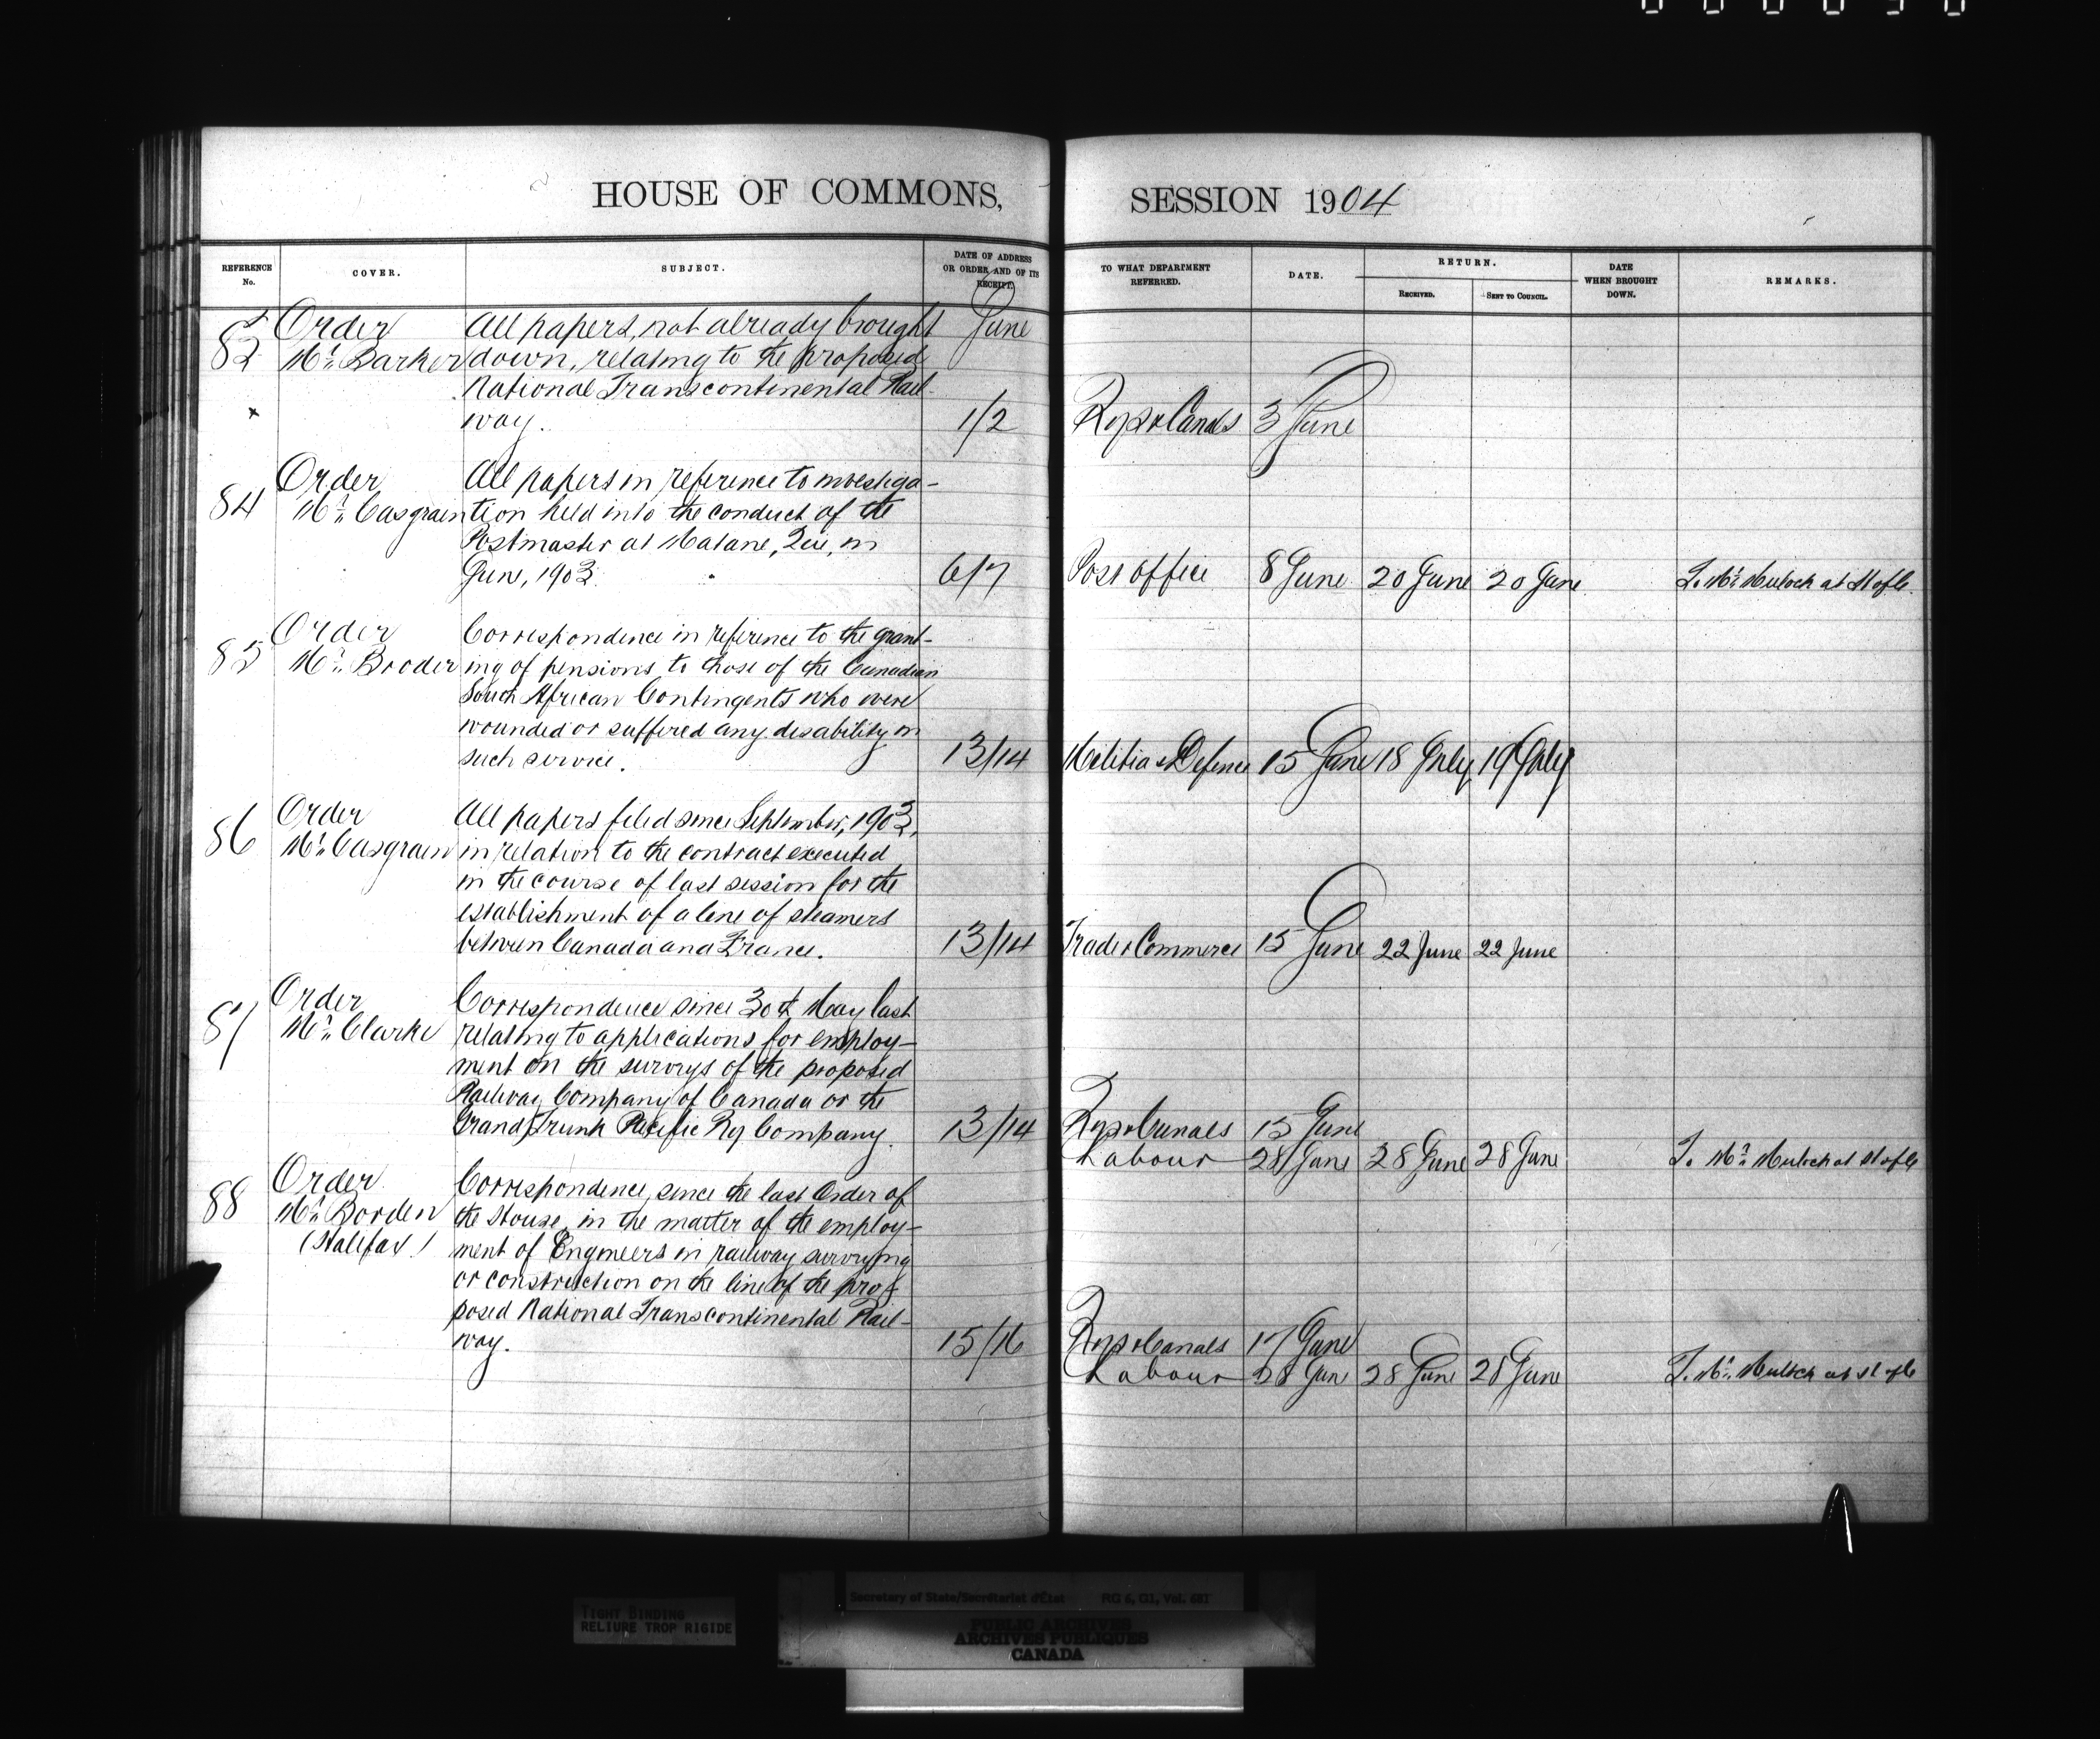 HOUSE OF COMMONS, SESSION 1904
REFERENCE No. COVER. SUBJECT. DATE OF ADDRESS OR ORDER AND OF ITS RECEIPT. TO WHAT DEPARTMENT REFERRED. DATE. RETURN. RECEIVED. SENT TO COUNCIL. DATE WHEN BROUGHT DOWN. REMARKS.
Order All papers, not already brought June
Mr. Barker down, relating to the proposed
National Transcontinental Rail-
x way. 1/2 Rys & Canals 3 June
Order All papers in reference to investiga-
84 Mr. Casgrain tion held into the conduct of the
Postmaster at Matane, Que, in
June, 1903. 6/7 Post Office 8 June 20 June 20 June T. Mr. Mulock at H of C.
Order Correspondence in reference to the grant-
85 Mr. Broder ing of pensions to those of the Canadian
South African Contingents who were
wounded or suffered any disability in
such service. 13/14 Militia & Defence 15 June 18 July 19 July
Order All papers filed since September, 1903,
86 Mr. Casgrain in relation to the contract executed
in the course of last session for the
establishment of a line of steamers
between Canada and France. 13/14 Trade & Commerce 15 June 22 June 22 June
Order Correspondence since 30th May last
87 Mr. Clarke relating to applications for employ-
ment on the surveys of the proposed
Railway Company of Canada or the
Grand Trunk Pacific Ry Company. 13/14 Rys & Canals 15 June
Labour 28 June 28 June 28 June T. Mr. Mulock at H of C
Order Correspondence, since the last Order of
88 Mr. Borden the House, in the matter of the employ-
(Halifax) ment of Engineers in railway surveying
or construction on the line of the pro-
posed National Transcontinental Rail-
way. 15/16 Rys & Canals 17 June
Labour 28 June 28 June 28 June T. Mr. Mulock at H of C
TIGHT BINDING
RELIURE TROP RIGIDE
Secretary of State/Secrétariat d'État RG 6, G1, Vol. 681
PUBLIC ARCHIVES
ARCHIVES PUBLIQUES
CANADA